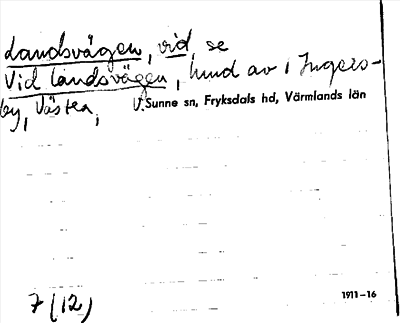 Landsvägen, vid, se
Vid landsvägen, lund av i Ingers-
by, Västra,
V. Sunne sn, Fryksdals hd, Värmlands län
7 (12)
1911-16